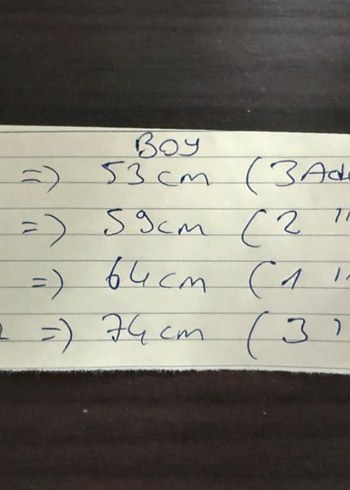 BOY
=> 53cm (3Ade
=> 59cm (2 "
=> 64cm (1 "
=> 74cm (3 "